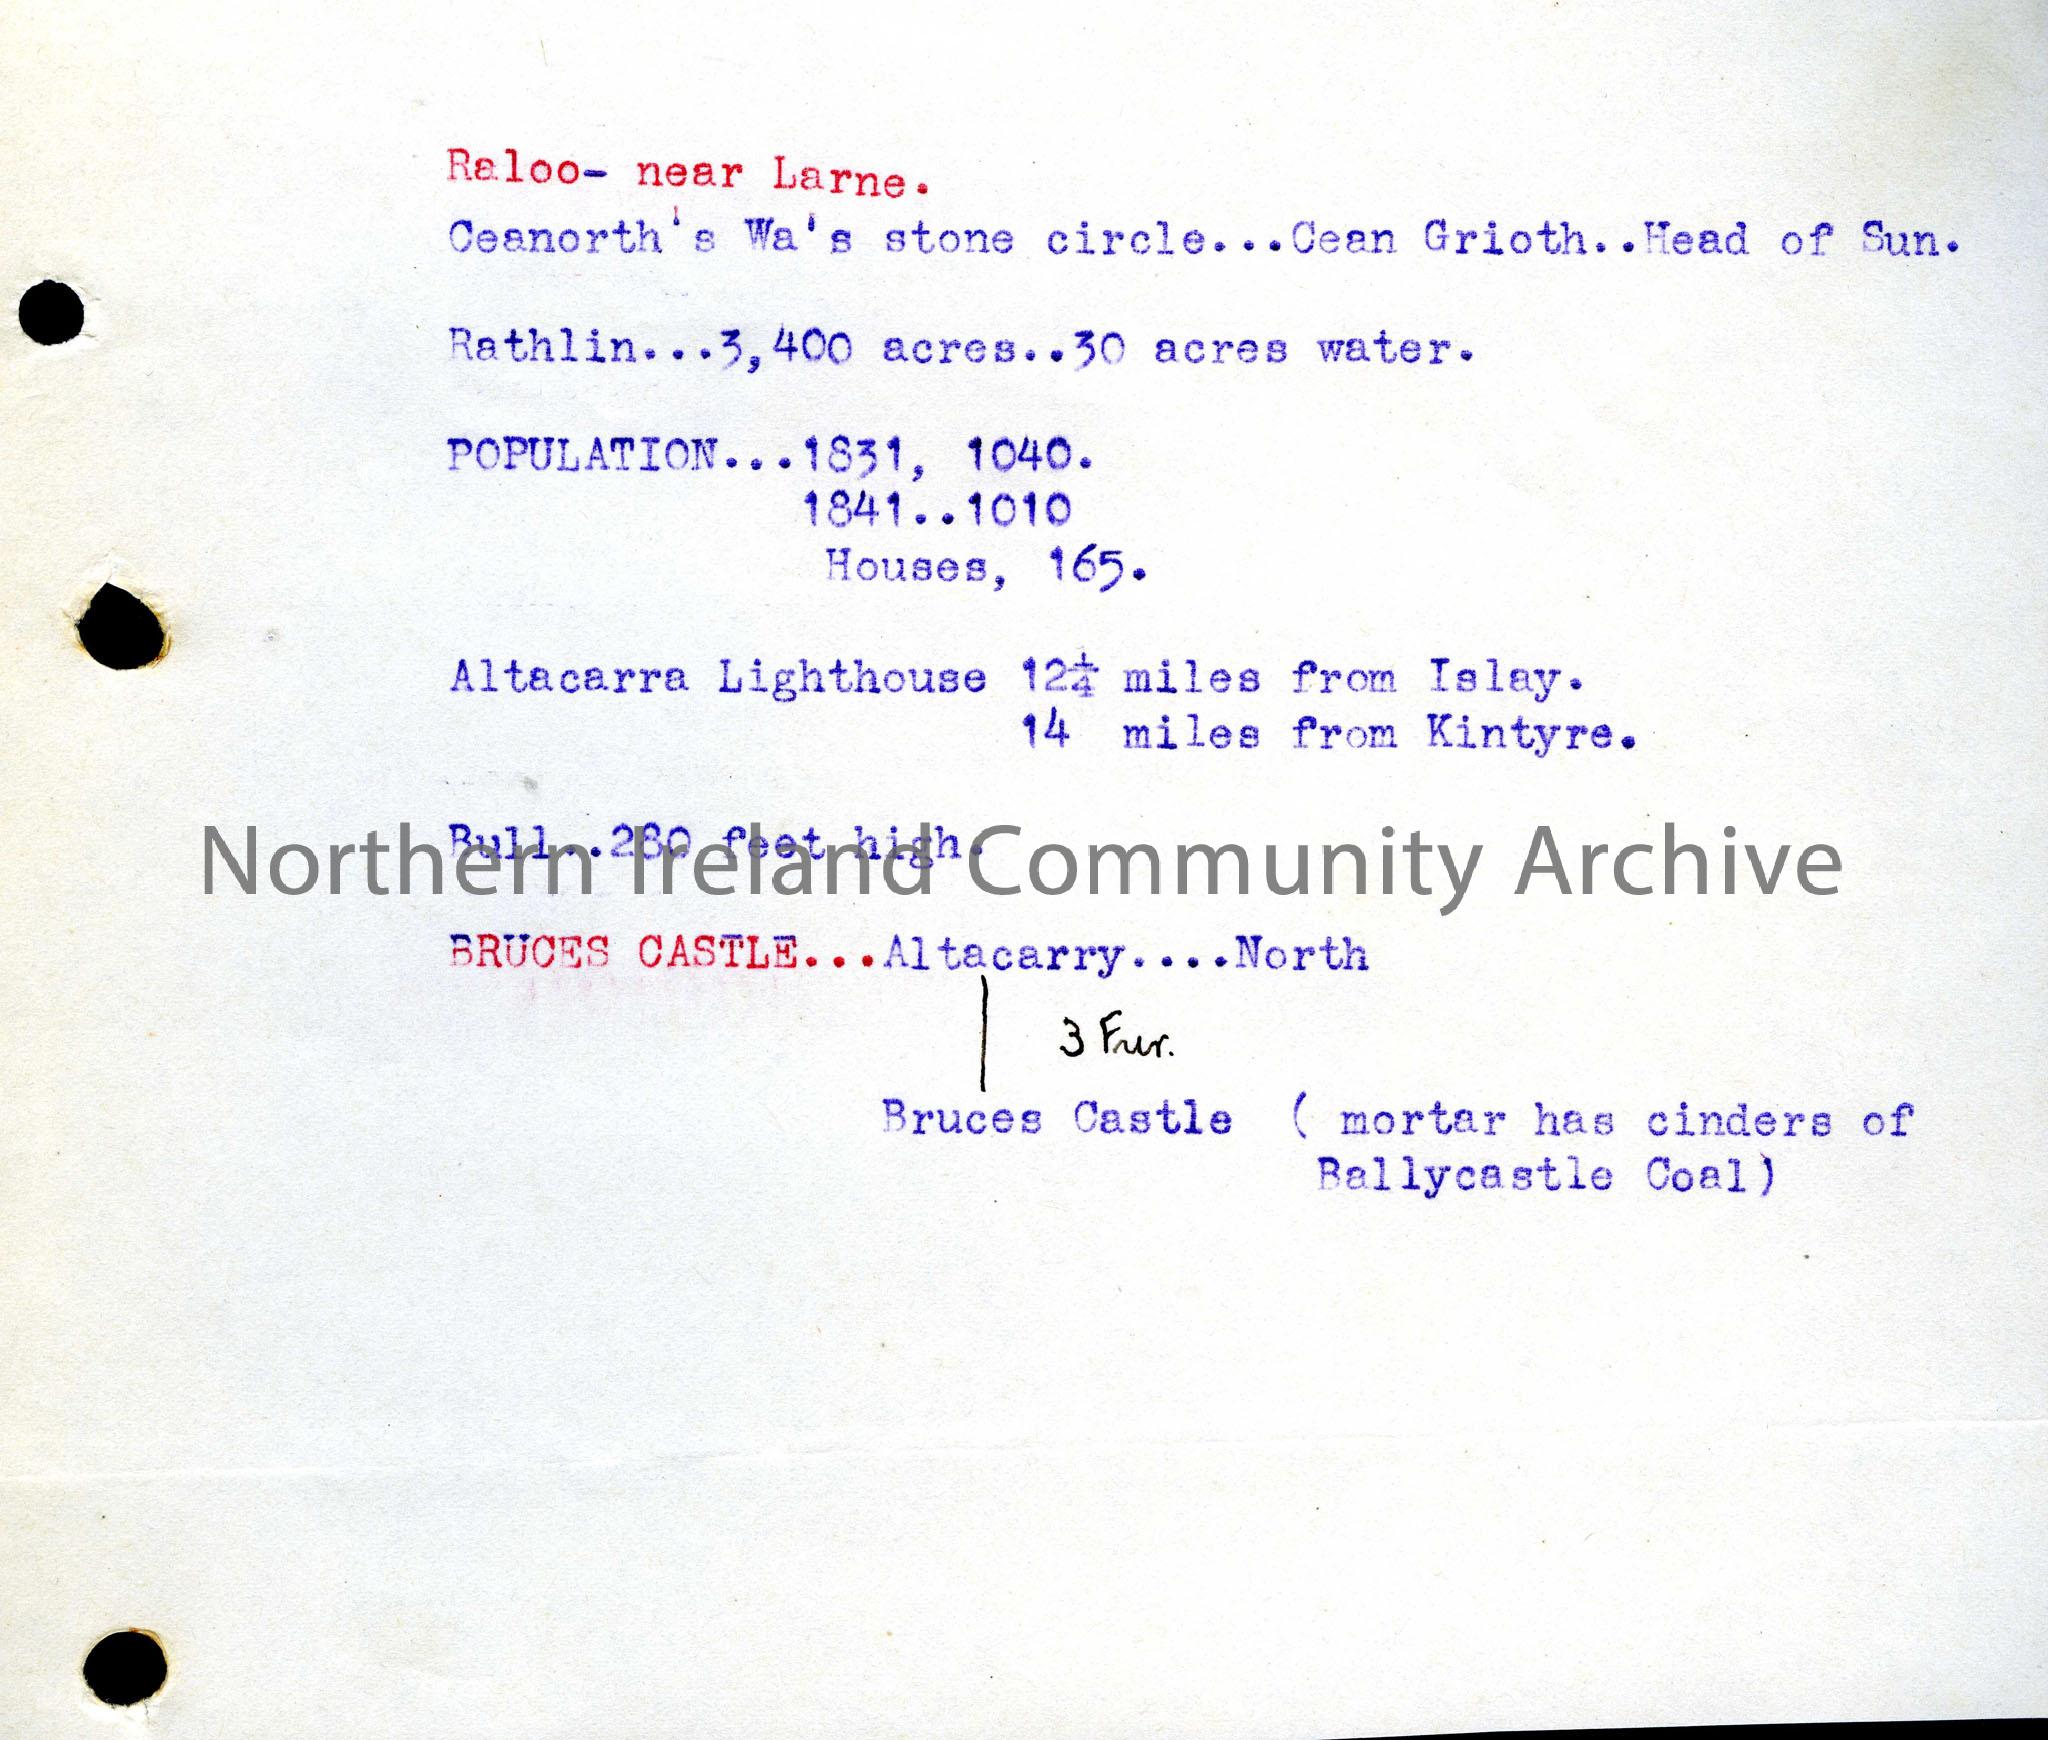 Raloo- near Larne.
Ceanorth's Wa's stone circle...Cean Grioth..Head of Sun.
Rathlin...3,400 acres..30 acres water.
POPULATION...1831, 1040.
1841..1010
Houses, 165.
Altacarra Lighthouse 12¼ miles from Islay.
14 miles from Kintyre.
Bull..280 feet high.
Northern Ireland Community Archive
BRUCES CASTLE...Altacarry....North
3 Fur.
Bruces Castle ( mortar has cinders of
Ballycastle Coal)